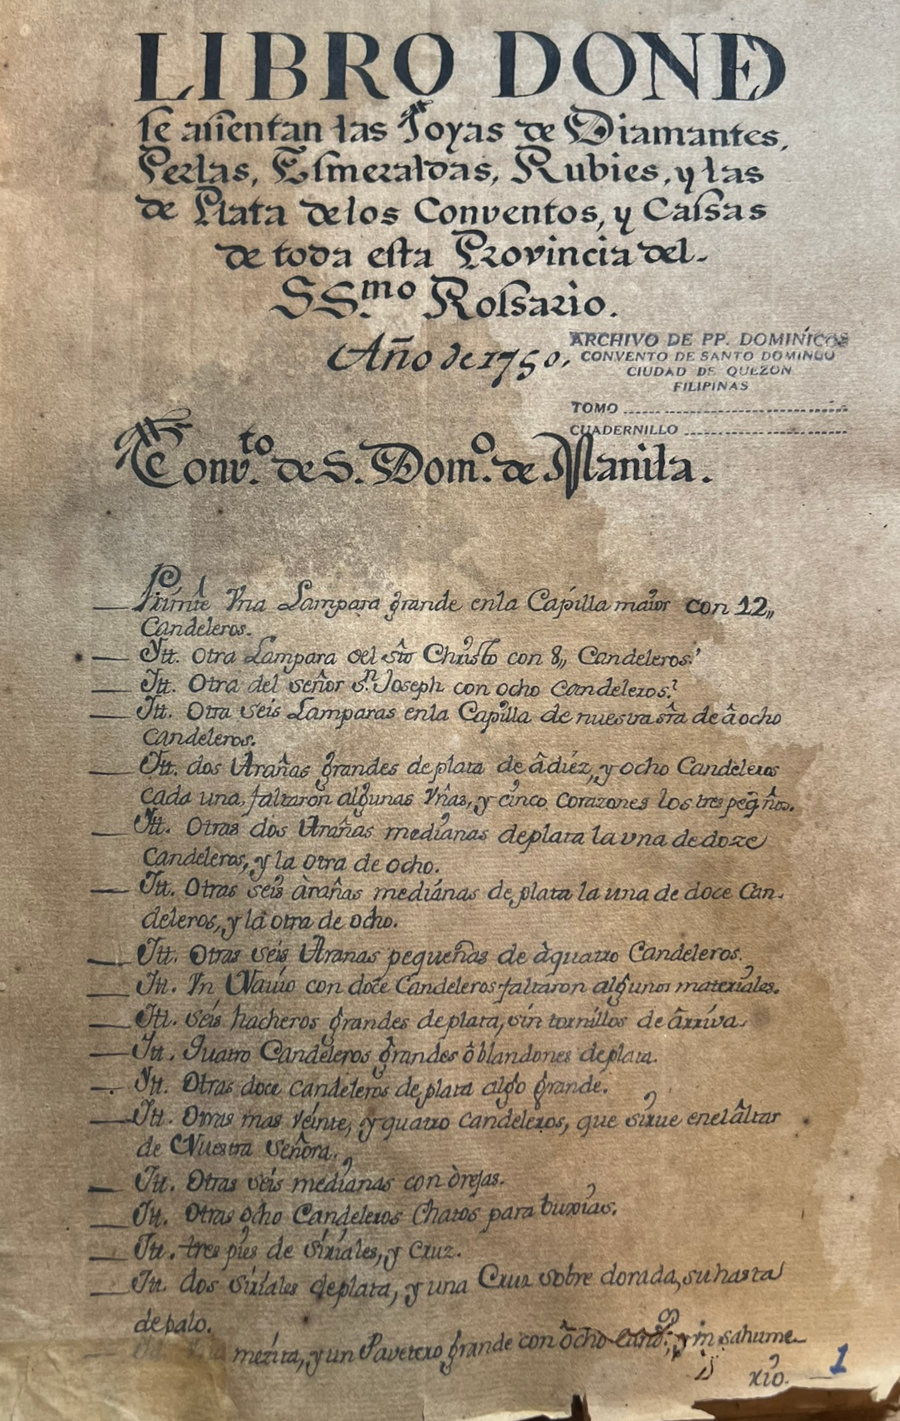 LIBRO DONDE
se assientan las Joyas de Diamantes,
Perlas, Esmeraldas, Rubies, y las
de Plata de los Conventos, y Cassas
de toda esta Provincia del
SS.mo Rossario.
Año de 1750.
ARCHIVO DE PP. DOMINÍCOS
CONVENTO DE SANTO DOMINGO
CIUDAD DE QUEZON
FILIPINAS
TOMO
CUADERNILLO
Conv.to de S. Dom.o de Manila.
Primte Vna Lampara grande enla Capilla maior con 12,,
Candeleros.
Itt. Otra Lampara del sto Christo con 8,, Candeleros.
Itt. Otra del señor Sn Joseph con ocho candeleros.
Itt. Otra seis Lamparas enla Capilla de nuestra sra de â ocho
candeleros.
Itt. dos Arañas grandes de plata de â diéz, y ocho Candeleros
cada una, faltaron algunas Vñas, y cinco corazones los tres peqños.
Itt. Otras dos Arañas medianas deplata la vna de doze
Candeleros, y la otra de ocho.
Itt. Otras seis àrañas mediánas de plata la una de doce Can-
deleros, y la otra de ocho.
Itt. Otras seis Aranas pequeñas de àquatro Candeleros.
Itt. Vn Navio con doce Candeleros faltaron algunos materiales.
Itt. seis hacheros grandes de plata, sin tornillos de ârriva.
Itt. Quatro Candeleros grandes ô blandones de plata.
Itt. Otras doce candeleros de plata algo grande.
Itt. Otras mas veinte, y quatro candeleros, que sirve enel âltar
de Nuestra Señora.
Itt. Otras seis medianas con òrejas.
Itt. Otras ocho Candeleros Chatos para buxias.
Itt. tres pies de siriales, y Cruz.
Itt. dos siriales deplata, y una Cruz sobre dorada, su hasta
de palo.
mezita, y un Pavetero grande con ôcho cand.s, y in sahume-
rio.
1